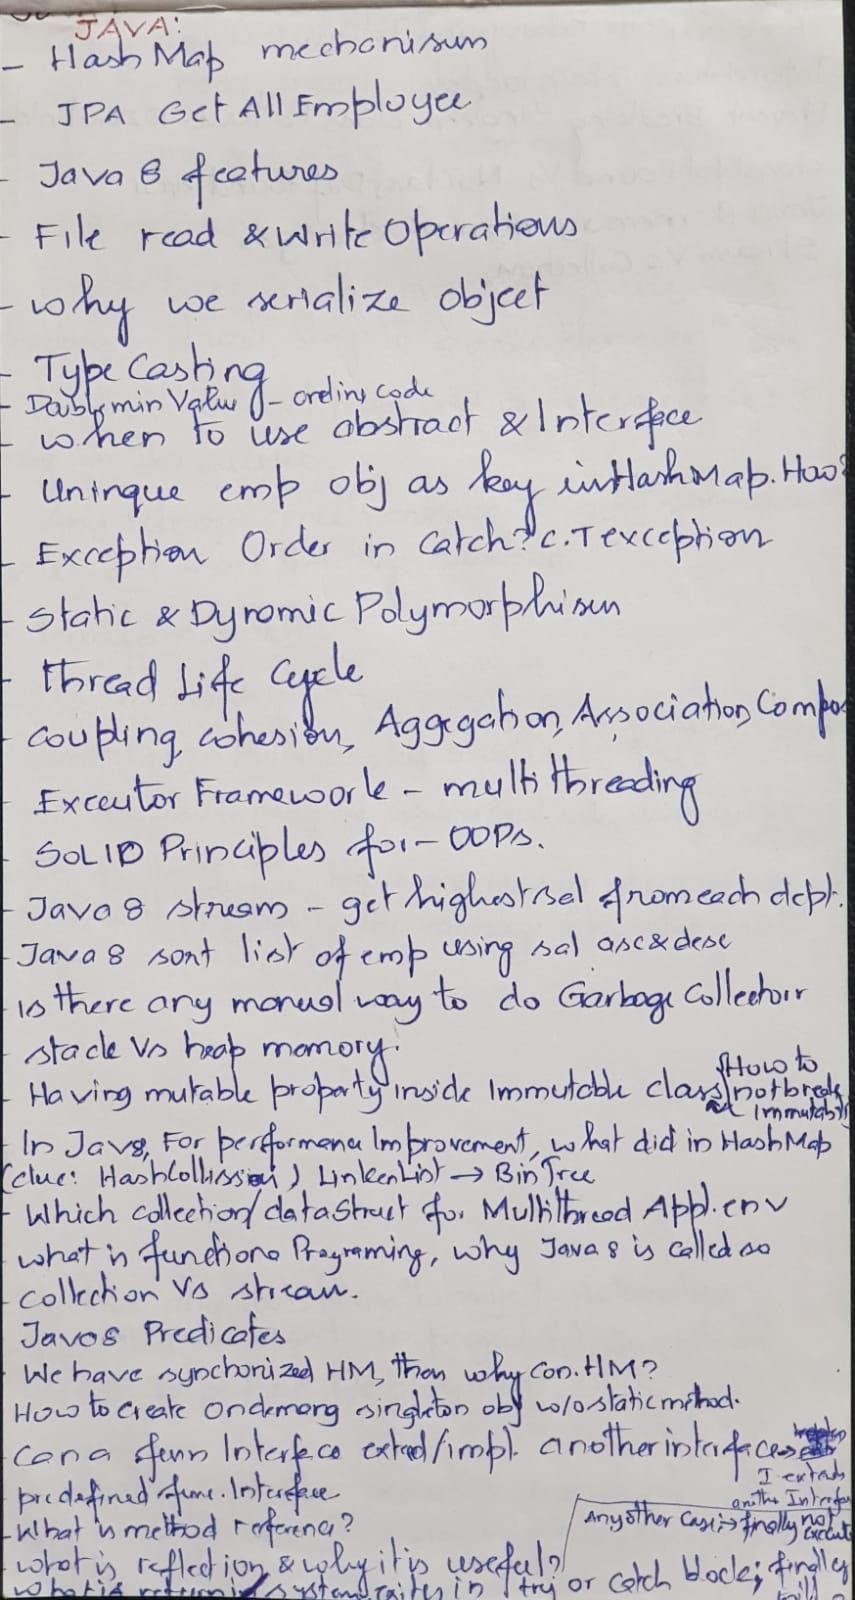 JAVA:
- HashMap mechanisum
- JPA Get All Employee
- Java 8 features
- File read & Write Operations
- why we serialize object
- Type Casting
- Double min Value - ording code
- when to use abstract & Interface
- Uninque emp obj as key in HashMap. How?
- Exception Order in Catch? C.T exception
- Static & Dynamic Polymorphisum
- Thread Life Cycle
- Coupling, cohesion, Aggregation, Association, Compo
- Executor Framework - multi threading
- SOLID Principles for - OOPs.
- Java 8 stream - get highest sal from each dept.
- Java 8 sort list of emp using sal asc & desc
- is there any manual way to do Garbage Collectoir
- stack Vs heap memory.
- Having mutable property inside Immutable class, How to not break Immutab
- In Java8, For performance Improvement, what did in HashMap
(clue: HashCollission) LinkenList → Bin Tree
- Which collection/dataStruct for Multithread Appl. env
what is functiona Programing, why Java 8 is called so
- collection Vs stream.
Java8 Predicates
- We have synchonized HM, then why Con.HM?
How to create ondemang singleton obj w/o static method.
- can a funn Interface exted/impl. another interfaces
I extads anothe Interfa
predefined func. Interface
- What is method referenc?
Any other case → finally not execute
- what is reflection & why it is useful?
what is return / system exites in try or catch block; finally